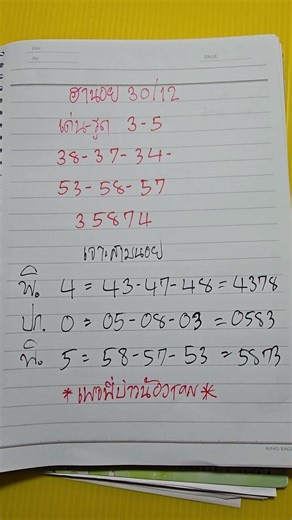 ฮานอย 30/12
เด่น-รูด 3-5
38-37-34-
53-58-57
35874
เจาะสามนอย
พิ. 4 = 43-47-48 = 4378
ปก. 0 = 05-08-03 = 0583
พิ. 5 = 58-57-53 = 5873